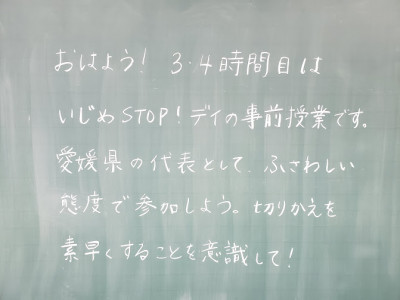 おはよう! 3・4時間目は
いじめSTOP!デイの事前授業です。
愛媛県の代表として、ふさわしい
態度で参加しよう。切りかえを
素早くすることを意識して!